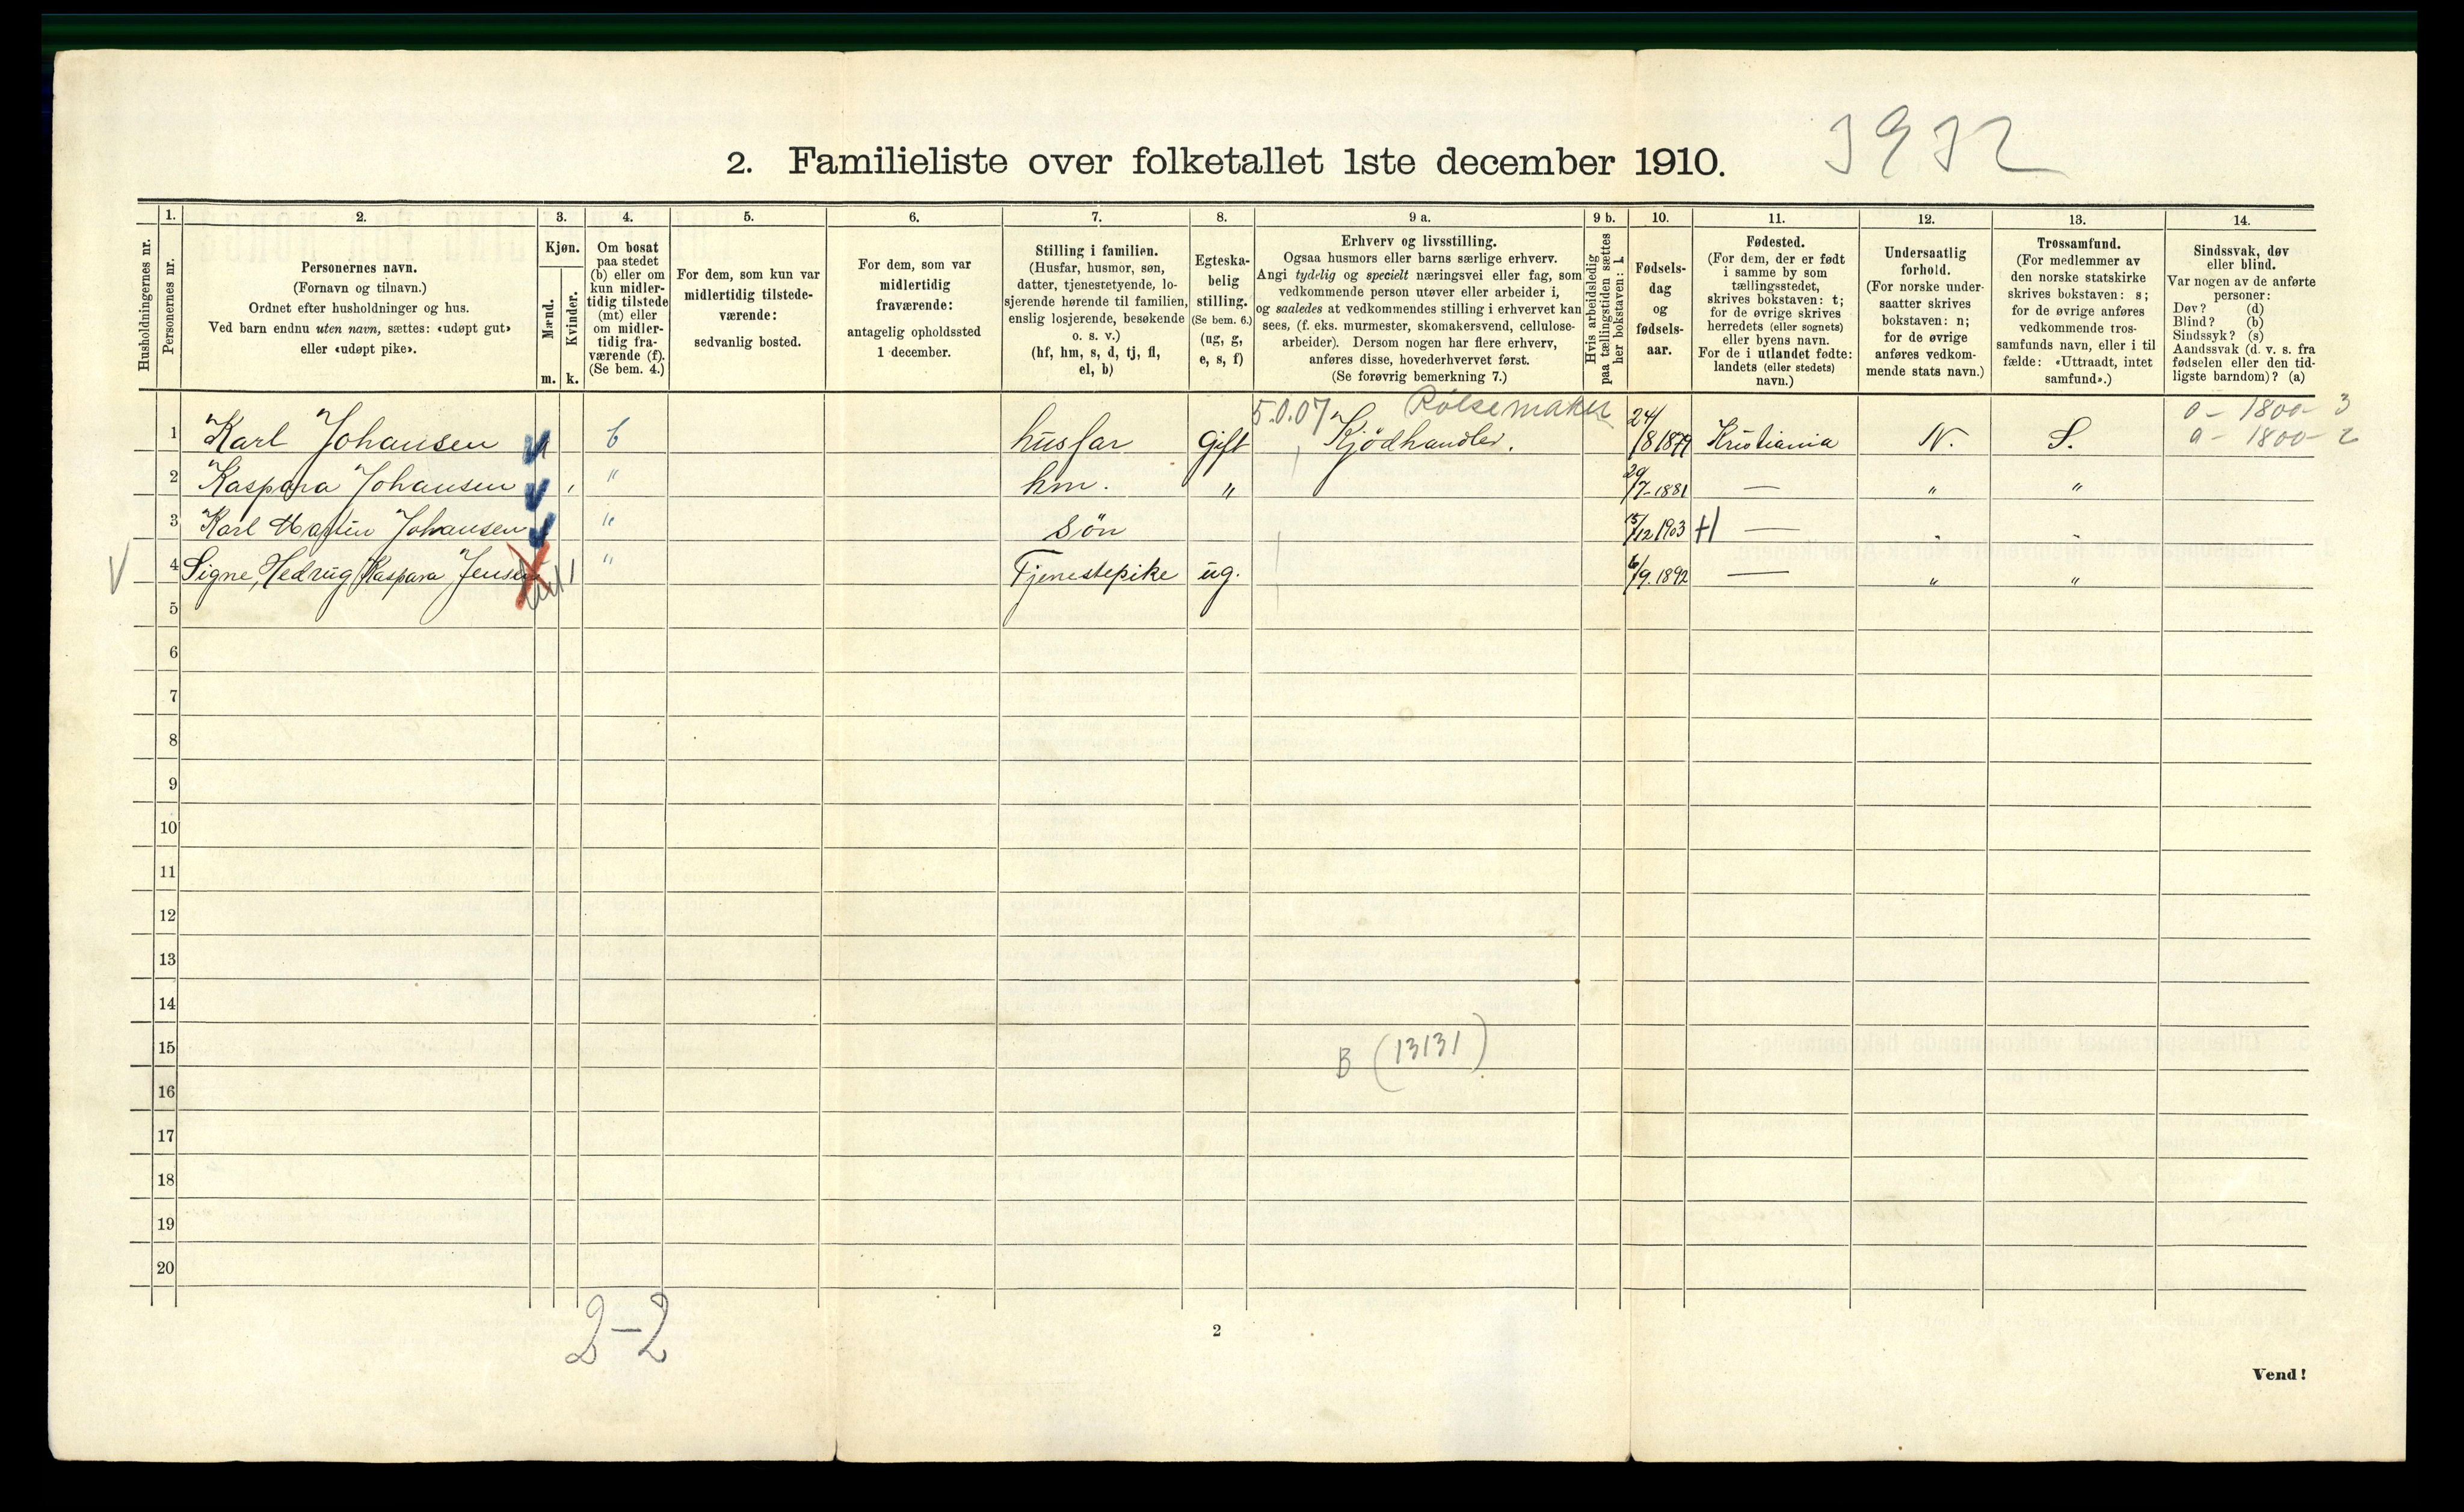 3932
2. Familieliste over folketallet 1ste december 1910.
Husholdningernes nr.
1.
Personernes nr.
2.
Personernes navn.
(Fornavn og tilnavn.)
Ordnet efter husholdninger og hus.
Ved barn endnu uten navn, sættes: «udøpt gut»
eller «udøpt pike».
3.
Kjøn.
Mænd.
Kvinder.
m.
k.
4.
Om bosat
paa stedet
(b) eller om
kun midler-
tidig tilstede
(mt) eller
om midler-
tidig fra-
værende (f).
(Se bem. 4.)
5.
For dem, som kun var
midlertidig tilstede-
værende:
sedvanlig bosted.
6.
For dem, som var
midlertidig
fraværende:
antagelig opholdssted
1 december.
7.
Stilling i familien.
(Husfar, husmor, søn,
datter, tjenestetyende, lo-
sjerende hørende til familien,
enslig losjerende, besøkende
o. s. v.)
(hf, hm, s, d, tj, fl,
el, b)
8.
Egteska-
belig
stilling.
(Se bem. 6.)
(ug, g,
e, s, f)
9 a.
Erhverv og livsstilling.
Ogsaa husmors eller barns særlige erhverv.
Angi tydelig og specielt næringsvei eller fag, som
vedkommende person utøver eller arbeider i,
og saaledes at vedkommendes stilling i erhvervet kan
sees, (f. eks. murmester, skomakersvend, cellulose-
arbeider). Dersom nogen har flere erhverv,
anføres disse, hovederhvervet først.
(Se forøvrig bemerkning 7.)
9 b.
Hvis arbeidsledig
paa tællingstiden sættes
her bokstaven: l.
10.
Fødsels-
dag
og
fødsels-
aar.
11.
Fødested.
(For dem, der er født
i samme by som
tællingsstedet,
skrives bokstaven: t;
for de øvrige skrives
herredets (eller sognets)
eller byens navn.
For de i utlandet fødte:
landets (eller stedets)
navn.)
12.
Undersaatlig
forhold.
(For norske under-
saatter skrives
bokstaven: n;
for de øvrige
anføres vedkom-
mende stats navn.)
13.
Trossamfund.
(For medlemmer av
den norske statskirke
skrives bokstaven: s;
for de øvrige anføres
vedkommende tros-
samfunds navn, eller i til
fælde: «Uttraadt, intet
samfund».)
14.
Sindssvak, døv
eller blind.
Var nogen av de anførte
personer:
Døv? (d)
Blind? (b)
Sindssyk? (s)
Aandssvak (d. v. s. fra
fødselen eller den tid-
ligste barndom)? (a)
5.0.07 Pölsemaker 0 - 1800 - 3
1 Karl Johansen b husfar Gift Kjödhandler. 24/8 1879 Kristiania N. S. a - 1800 - 2
2 Kaspara Johansen " hm. " 29/7-1881 — " "
3 Karl Martin Johansen " sön 15/12 1903 — " "
4 Signe, Hedrug Kaspara Jensen 1 " Tjenestepike ug. 6/9. 1892 — " "
5
6
7
8
9
10
11
12
13
14
15 B (13131)
16
17
18
19
20
2-2
2
Vend!